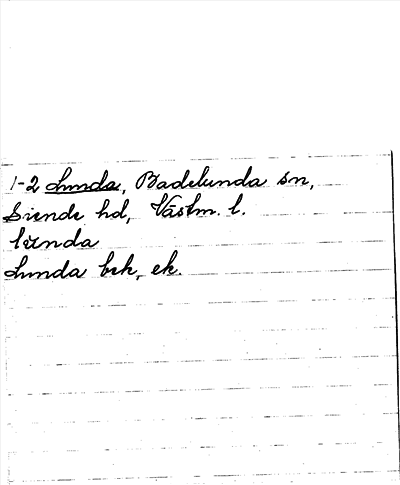 1-2 Lunda, Badelunda sn,
Siende hd, Västm. l.
lùnda
Lunda bek, ek.